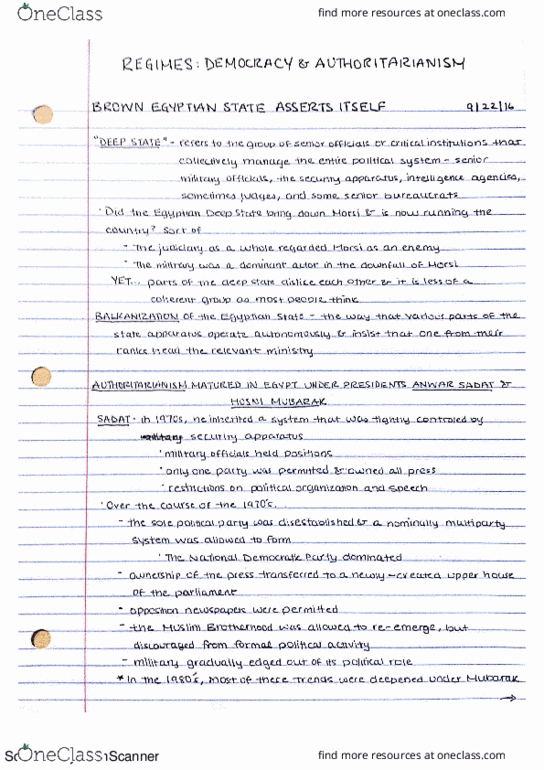 OneClass
find more resources at oneclass.com
REGIMES: DEMOCRACY & AUTHORITARIANISM
BROWN EGYPTIAN STATE ASSERTS ITSELF 9/22/16
"DEEP STATE" - refers to the group of senior officials or critical institutions that
collectively manage the entire political system - senior
military officials, the security apparatus, intelligence agencies,
sometimes judges, and some senior bureaucrats
· Did the Egyptian Deep State bring down Morsi & is now running the
country? Sort of
- The judiciary as a whole regarded Morsi as an enemy
- The military was a dominant actor in the downfall of Morsi
YET... parts of the deep state dislike each other & it is less of a
coherent group as most people think
BALKANIZATION of the Egyptian State - the way that various parts of the
state apparatus operate autonomously & insist that one from their
ranks head the relevant ministry
AUTHORITARIANISM MATURED IN EGYPT UNDER PRESIDENTS ANWAR SADAT &
HOSNI MUBARAK
SADAT - in 1970s, he inherited a system that was tightly controled by
military security apparatus
· military officials held positions
· only one party was permitted & owned all press
· restrictions on political organization and speech
· Over the course of the 1970's...
- the sole political party was disestablished & a nominally multiparty
system was allowed to form
· The National Democratic Party dominated
- ownership of the press transferred to a newly-created upper house
of the parliament
- opposition newspapers were permitted
- the Muslim Brotherhood was allowed to re-emerge, but
discouraged from formal political activity
- military gradually edged out of its political role
* In the 1980's, most of these trends were deepened under Mubarak
→
OneClass Scanner
find more resources at oneclass.com